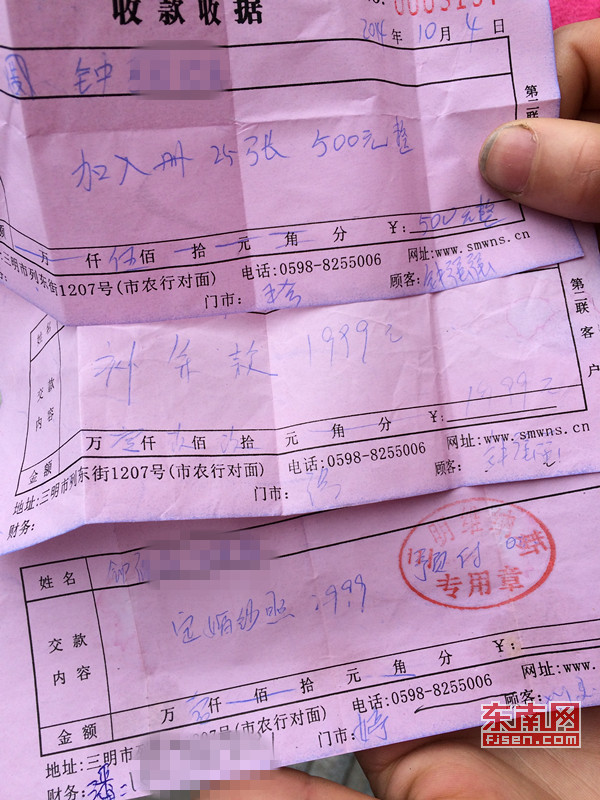 收款收据
2014年10月4日
钟
加入册 25张 500元整
万 仟伍佰 拾 元 角 分 ¥: 500元整
三明市列东街1207号(市农行对面) 电话:0598-8255006 网址:www.smwns.cn
门市: 顾客:
第二联
姓名
交款内容
补余款 1999元
金额 万壹仟 佰 拾 元 角 分 1999元
地址:三明市列东街1207号(市农行对面) 电话:0598-8255006 网址:www.smwns.cn
财务: 门市: 顾客:
第二联 客户
姓名 钟
交款内容
定婚纱照 1999 预付
专用章
金额 万 仟 佰 拾 元 角 分 ¥:
地址:三明市列 号(市农行对面) 电话:0598-8255006 网址:www.
财务: 门市: 顾客:
东南网
FJSEN.COM